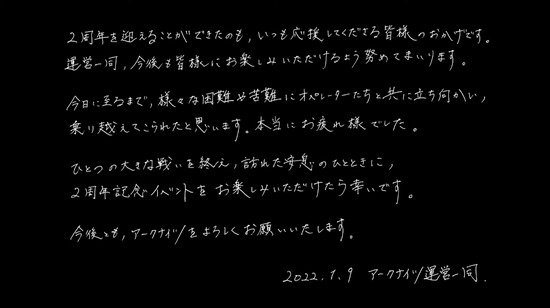 2周年を迎えることができたのも、いつも応援してくださる皆様のおかげです。
運営一同、今後も皆様にお楽しみいただけるよう努めてまいります。
今日に至るまで、様々な困難や苦難にオペレーターたちと共に立ち向かい、
乗り越えてこられたと思います。本当にお疲れ様でした。
ひとつの大きな戦いを終え、訪れた安息のひとときに、
2周年記念イベントをお楽しみいただけたら幸いです。
今後とも、アークナイツをよろしくお願いいたします。
2022.1.9 アークナイツ運営一同.